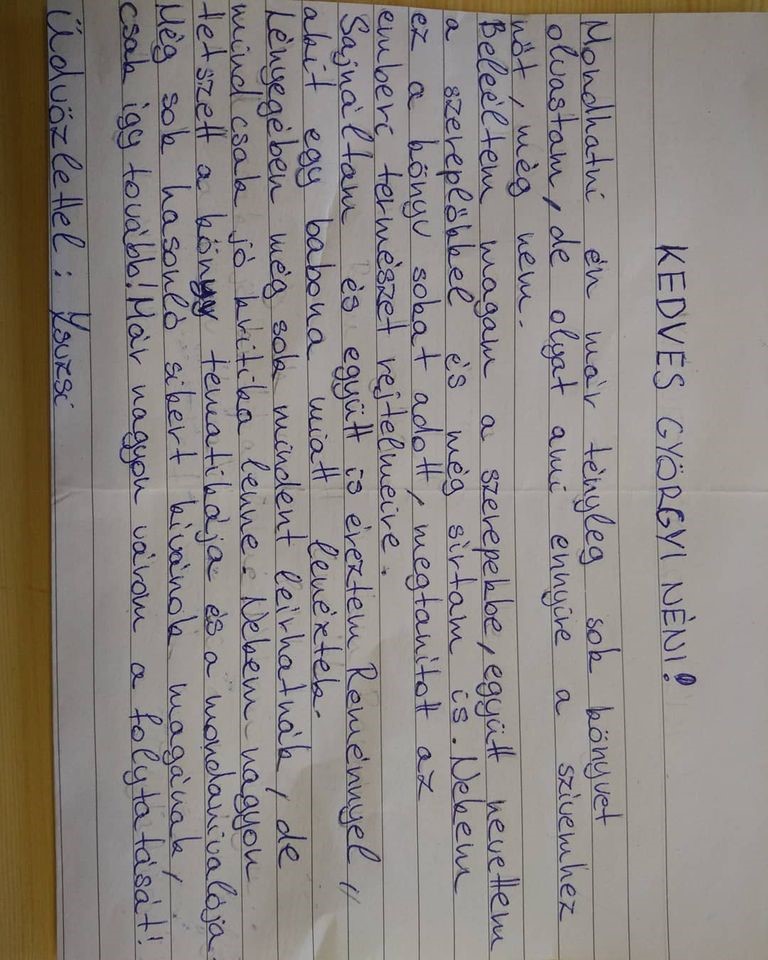 KEDVES GYÖRGYI NÉNI!
Mondhatni én már tényleg sok könyvet
olvastam, de olyat ami ennyire a szívemhez
nőt, még nem.
Beleéltem magam a szerepekbe, együtt nevettem
a szereplőkkel és még sírtam is. Nekem
ez a könyv sokat adott, megtanított az
emberi természet rejtelmeire.
Sajnáltam és együtt is éreztem Reménnyel,
akit egy babona miatt lenéztek.
Lényegében még sok mindent leírhatnák, de
mind csak jó kritika lenne. Nekem nagyon
tetszett a könyv tematikája és a mondanivalója.
Még sok hasonló sikert kívánok magának,
csak így tovább! Már nagyon várom a folytatását!
Üdvözlettel: Zsuzsi